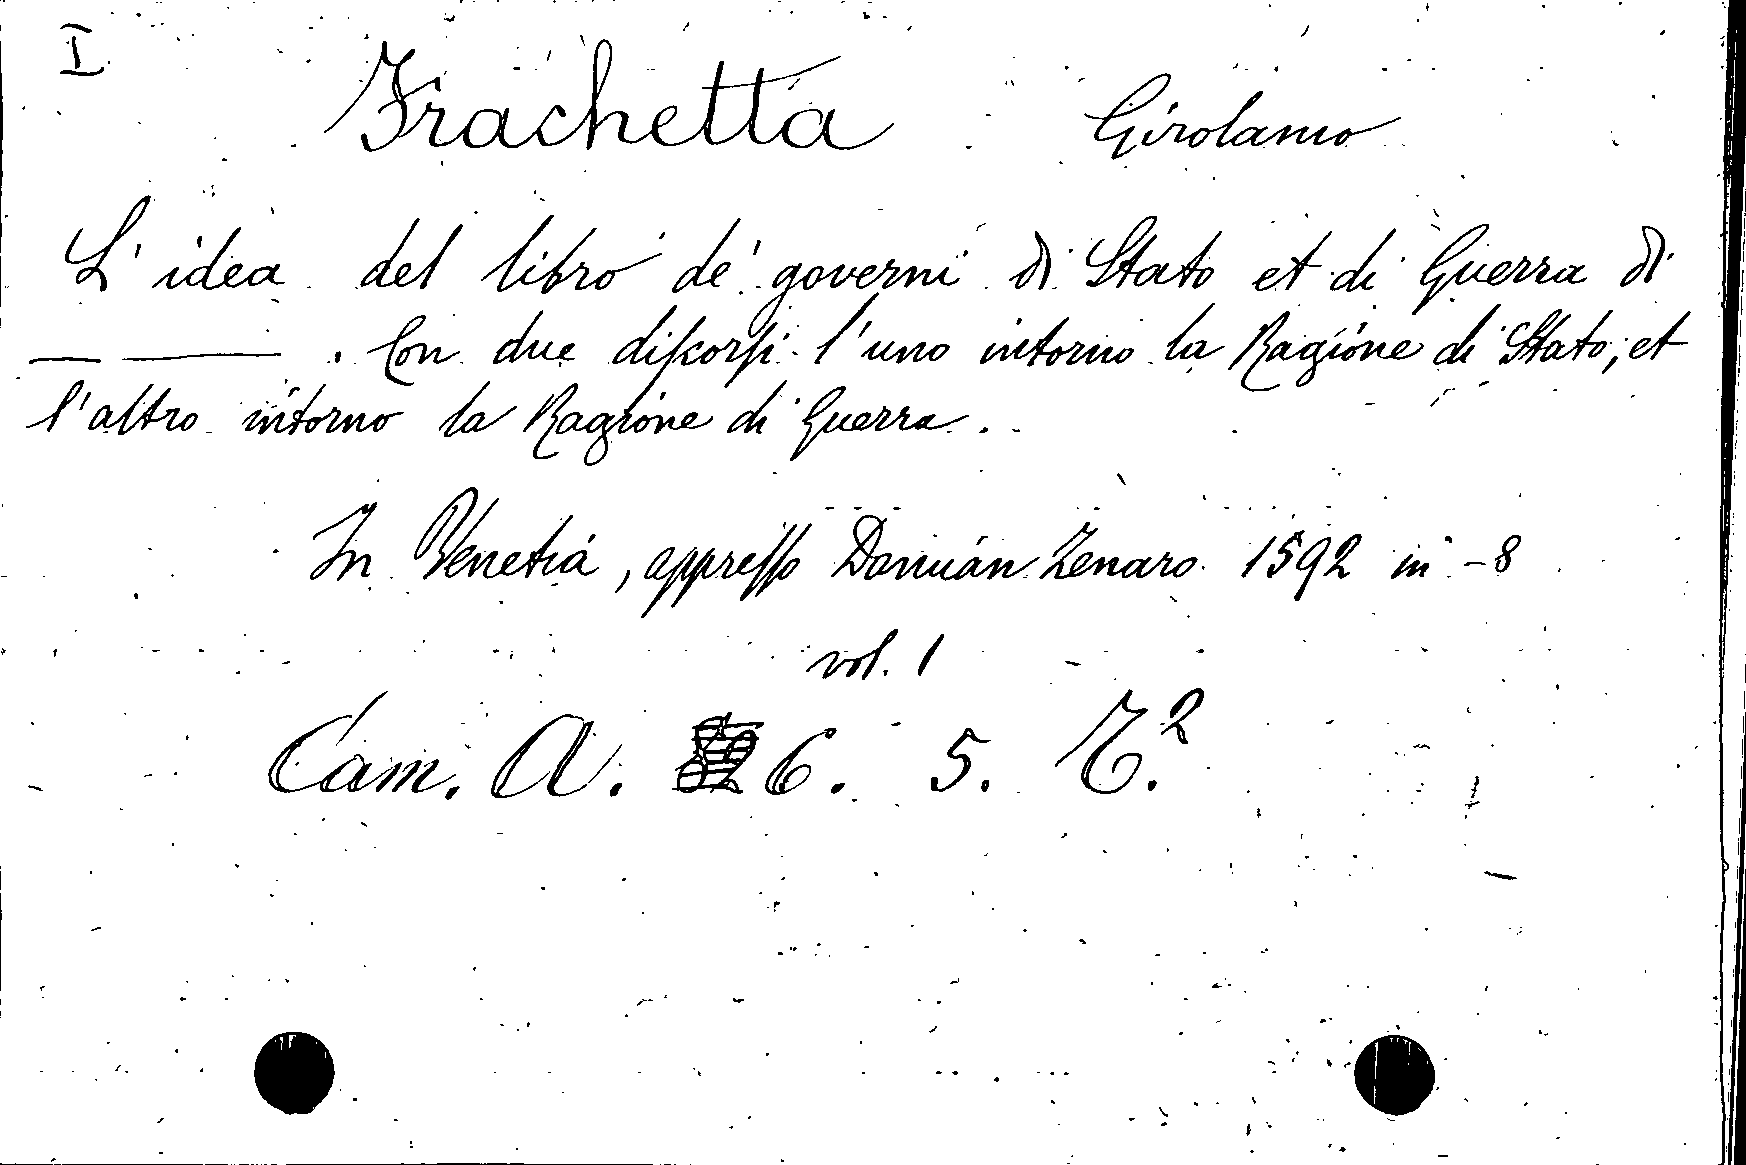 I
Frachetta Girolamo
L'idea del libro de' governi di Stato et di Guerra di
—— ————. Con due diſcorſi l'uno intorno la Ragione di Stato, et
l'altro intorno la Ragione di Guerra.
In Venetia, appreſſo Damian Zenaro 1592 in -8
vol. 1
Cam. A. 6. 5. T.²